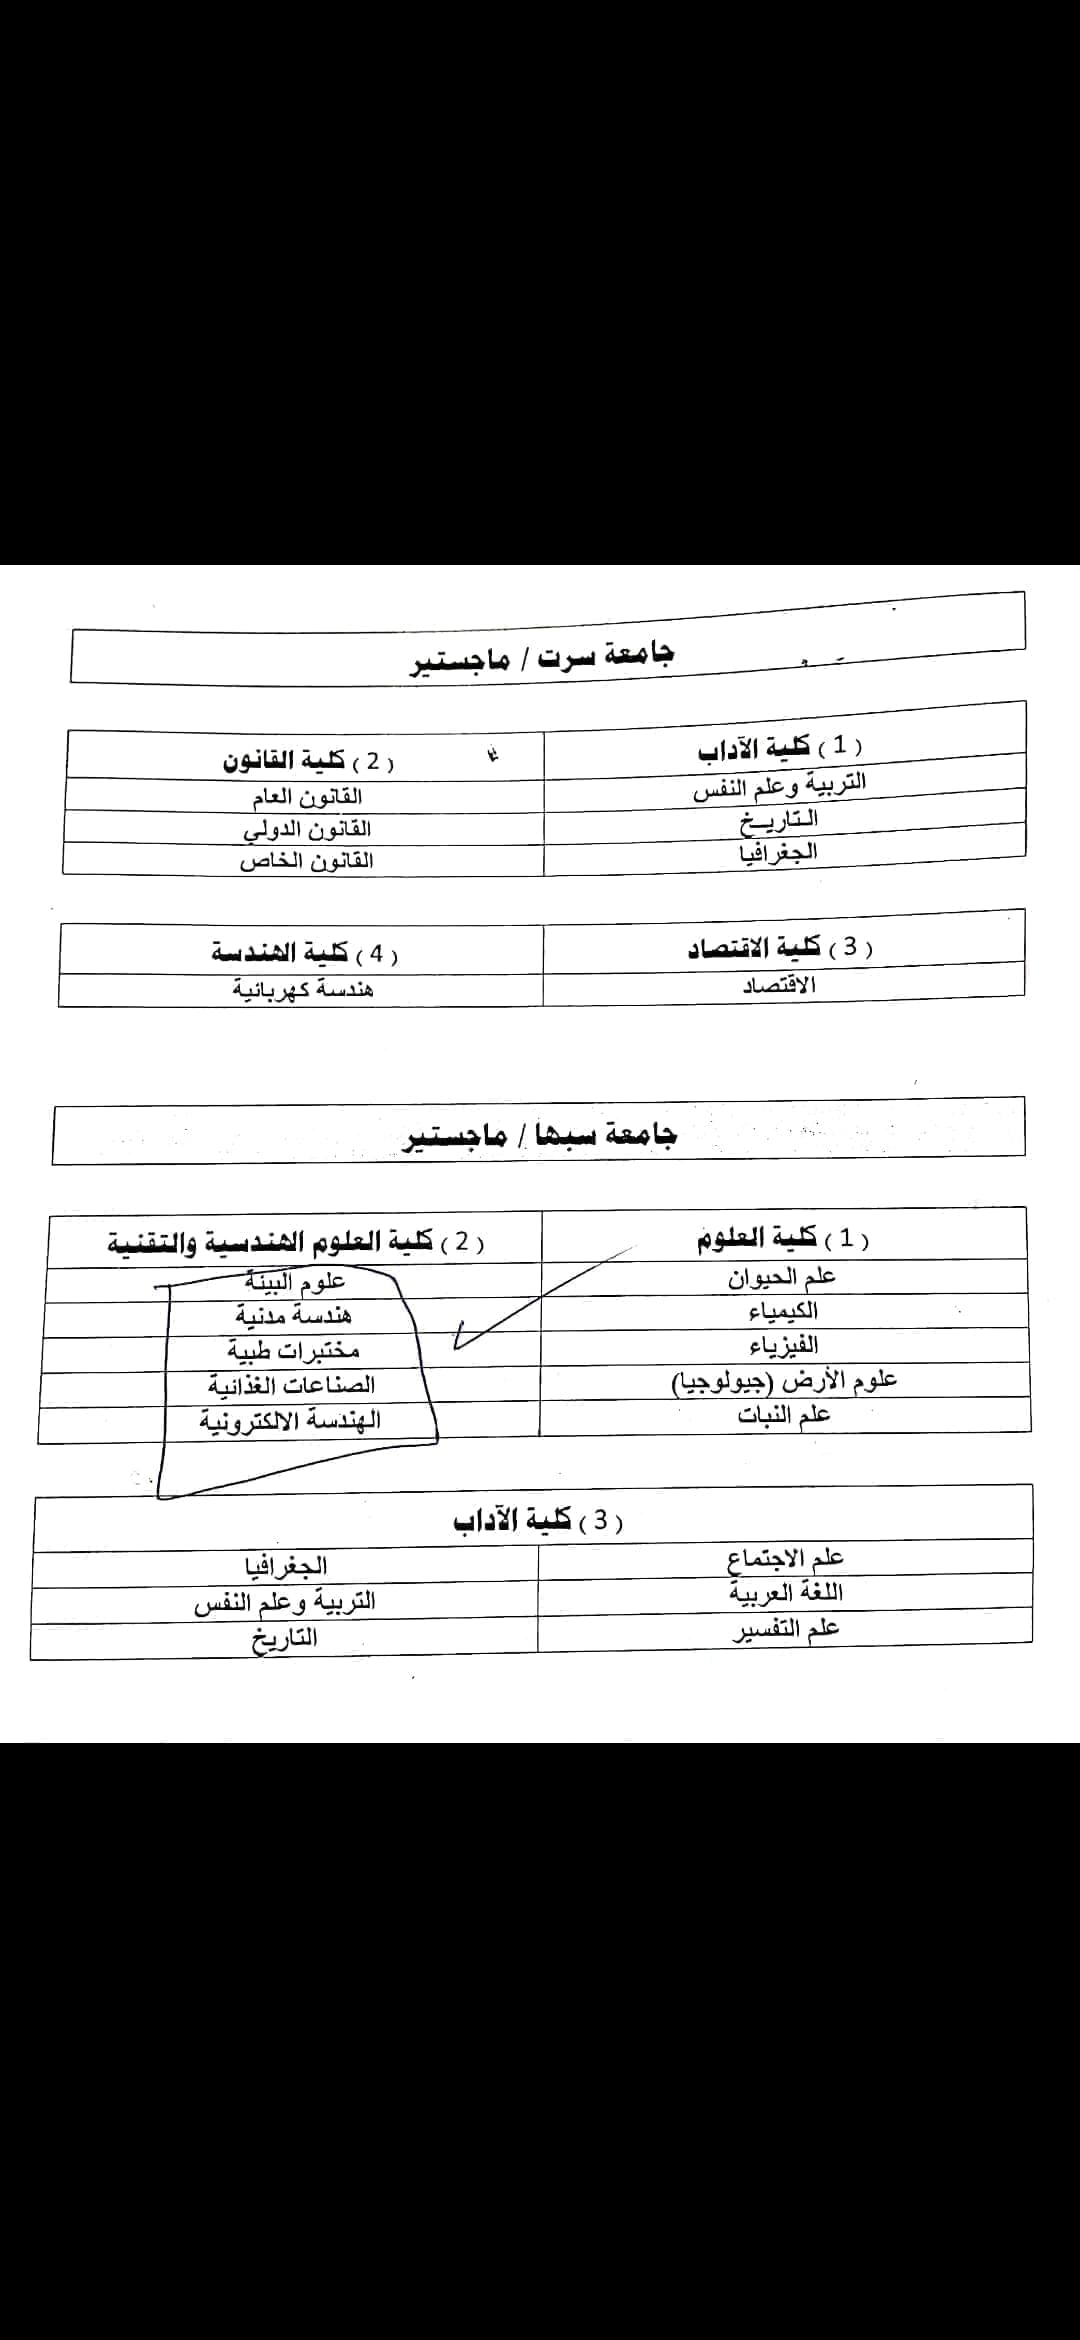 جامعة سرت / ماجستير
( 1 ) كلية الآداب
( 2 ) كلية القانون
التربية وعلم النفس
القانون العام
التاريـخ
القانون الدولي
الجغرافيا
القانون الخاص
( 3 ) كلية الاقتصاد
( 4 ) كلية الهندسة
الاقتصاد
هندسة كهربائية
جامعة سبها / ماجستير
( 1 ) كلية العلوم
( 2 ) كلية العلوم الهندسية والتقنية
علم الحيوان
علوم البيئة
الكيمياء
هندسة مدنية
الفيزياء
مختبرات طبية
علوم الأرض (جيولوجيا)
الصناعات الغذائية
علم النبات
الهندسة الالكترونية
( 3 ) كلية الآداب
علم الاجتماع
الجغرافيا
اللغة العربية
التربية وعلم النفس
علم التفسير
التاريخ